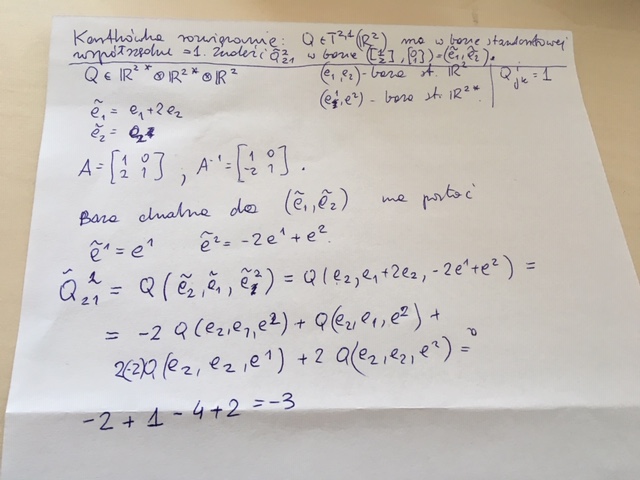 Kartkówka rozwiązanie: Q ∈ T^{2,1}(ℝ²) ma w bazie standardowej
współrzędne = 1. Znaleźć Q̃²₂₁ w bazie ([1 2], [0 1]) = (ẽ₁, ẽ₂).
Q ∈ ℝ²* ⊗ ℝ²* ⊗ ℝ² (e₁, e₂) - baza st. ℝ² Qⁱ_{jk} = 1
(e¹, e²) - baza st. ℝ²*
ẽ₁ = e₁ + 2e₂
ẽ₂ = e₂
A = [1 0; 2 1] , A⁻¹ = [1 0; -2 1] .
Baza dualna do (ẽ₁, ẽ₂) ma postać
ẽ¹ = e¹ ẽ² = -2e¹ + e².
Q̃₂₁² = Q(ẽ₂, ẽ₁, ẽ²) = Q(e₂, e₁+2e₂, -2e¹+e²) =
= -2 Q(e₂, e₁, e²) + Q(e₂, e₁, e²) +
2(-2)Q(e₂, e₂, e¹) + 2 Q(e₂, e₂, e²) =
-2 + 1 - 4 + 2 = -3